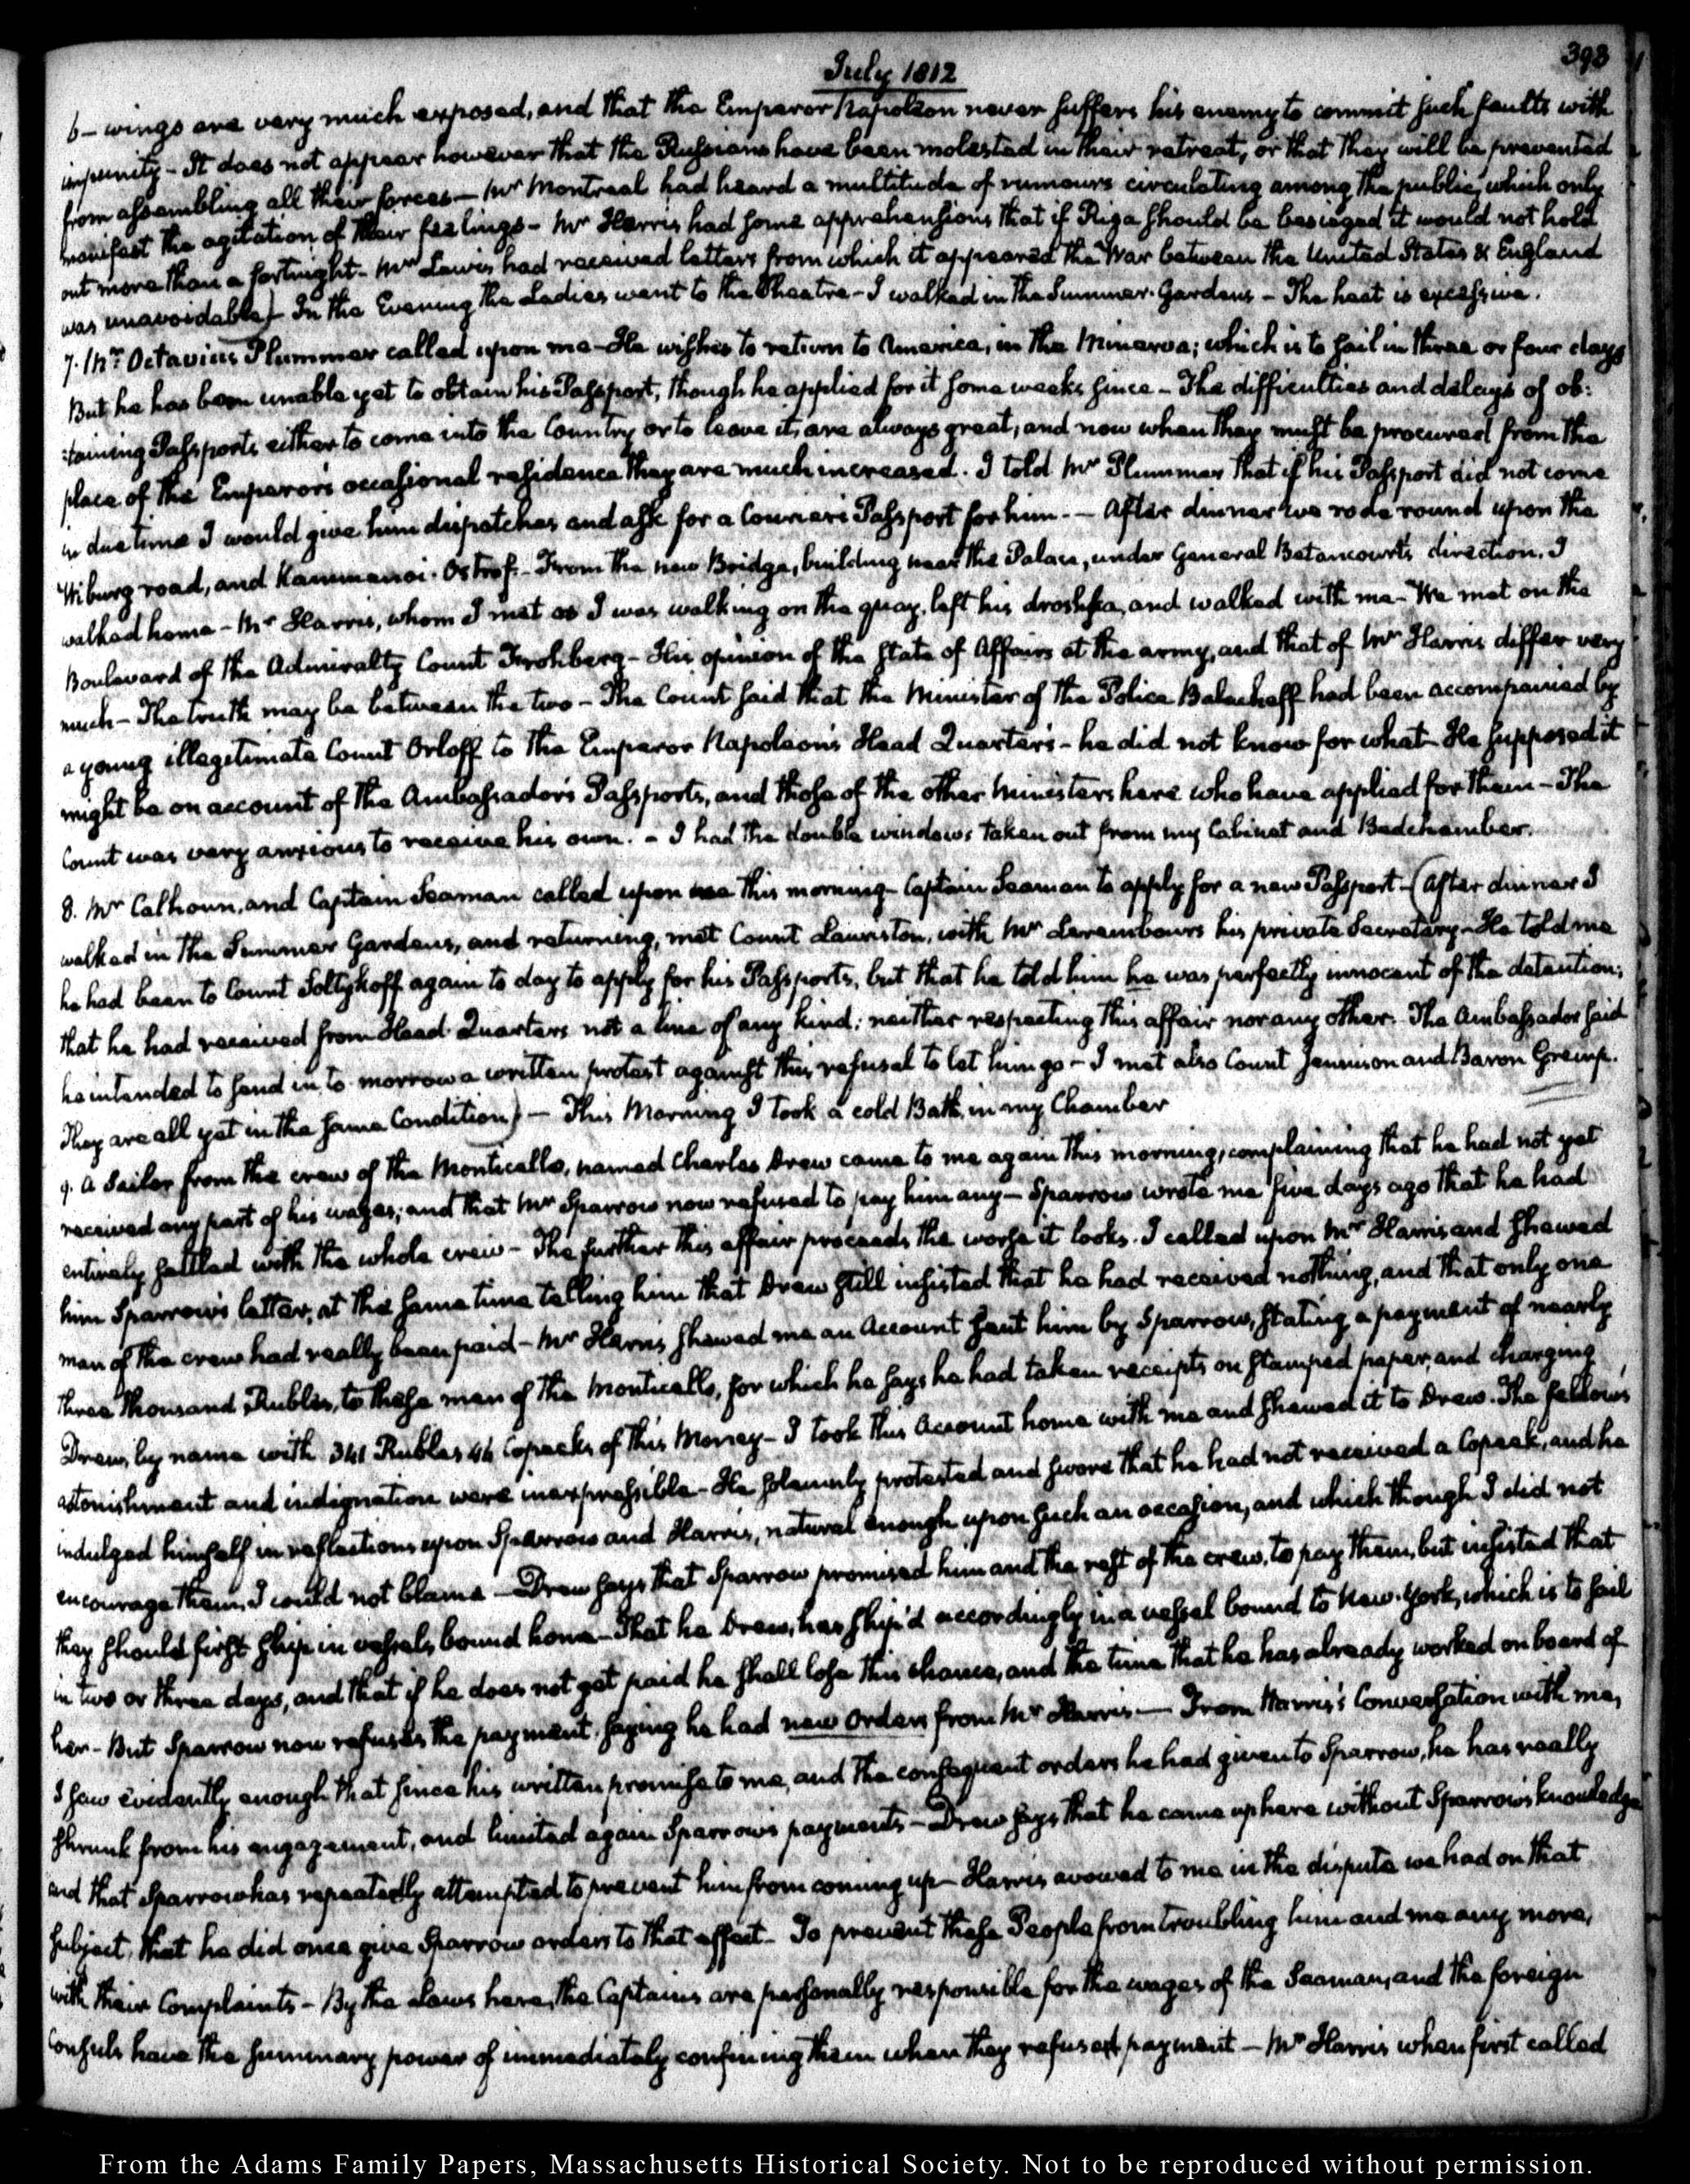 393
July 1812
6 – wings are very much exposed, and that the Emperor Napoleon never suffers his enemy to commit such faults with
impunity – It does not appear however that the Russians have been molested in their retreat, or that they will be prevented
from assembling all their forces – Mr Montreal had heard a multitude of rumours circulating among the public, which only
manifest the agitation of their feelings – Mr Harris had some apprehensions that if Riga should be besieged it would not hold
out more than a fortnight – Mr Lewis had received letters from which it appeared the War between the United States & England
was unavoidable) – In the Evening the Ladies went to the Theatre – I walked in the Summer Gardens – The heat is excessive.
7. Mr. Octavius Plummer called upon me – He wishes to return to America, in the Minerva; which is to sail in three or four days
But he has been unable yet to obtain his Passport, though he applied for it some weeks since – The difficulties and delays of ob:
:taining Passports either to come into the Country or to leave it, are always great, and now when they must be procured from the
place of the Emperor's occasional residence they are much increased. I told Mr Plummer that if his Passport did not come
in due time I would give him dispatches and ask for a Couriers Passport for him. – After dinner we rode round upon the
Wiburg road, and Kammenoi-Ostrof – From the new Bridge, building near the Palace, under General Betancourt's direction. I
walked home – Mr Harris, whom I met as I was walking on the quay, left his droshka, and walked with me – We met on the
Boulevard of the Admiralty Count Frohberg – His opinion of the state of Affairs at the army, and that of Mr Harris differ very
much – The truth may be between the two – The Count said that the Minister of the Police Balacheff had been accompanied by
a young illegitimate Count Orloff to the Emperor Napoleon's Head Quarters – he did not know for what – He supposed it
might be on account of the Ambassador's Passports, and those of the other Ministers here who have applied for them – The
Count was very anxious to receive his own. – I had the double windows taken out from my Cabinet and Bedchamber.
8. Mr Calhoun, and Captain Seaman called upon me this morning – Captain Seaman to apply for a new Passport – (After dinner I
walked in the Summer Gardens, and returning, met Count Lauriston, with Mr Larembours his private Secretary – He told me
he had been to Count Soltykoff again to day to apply for his Passports, but that he told him he was perfectly innocent of the detention;
that he had received from Head Quarters not a line of any kind; neither respecting this affair nor any other. The Ambassador said
he intended to send in to-morrow a written protest against this refusal to let him go – I met also Count Jennison and Baron Gremp.
They are all yet in the same Condition) – This Morning I took a cold Bath, in my Chamber
9. A Sailor from the crew of the Monticello, named Charles Drew came to me again this morning, complaining that he had not yet
received any part of his wages; and that Mr Sparrow now refused to pay him any – Sparrow wrote me five days ago that he had
entirely settled with the whole crew – The further this affair proceeds the worse it looks. I called upon Mr Harris and shewed
him Sparrow's letter, at the same time telling him that Drew still insisted that he had received nothing, and that only one
man of the crew had really been paid – Mr Harris shewed me an Account sent him by Sparrow, stating a payment of nearly
three thousand Rubles, to these men of the Monticello, for which he says he had taken receipts on stamped paper, and charging
Drew, by name with 341 Rubles 46 Copecks of this Money – I took this Account home with me and shewed it to Drew. The fellow's
astonishment and indignation were inexpressible – He solemnly protested and swore that he had not received a Copeck, and he
indulged himself in reflections upon Sparrow and Harris, natural enough upon such an occasion, and which though I did not
encourage them, I could not blame – Drew says that Sparrow promised him and the rest of the crew, to pay them, but insisted that
they should first ship in vessels bound home – That he Drew, has ship'd accordingly in a vessel bound to New-York, which is to sail
in two or three days, and that if he does not get paid he shall lose this chance, and the time that he has already worked on board of
her – But Sparrow now refuses the payment, saying he had new orders from Mr Harris – From Harris's Conversation with me,
I saw evidently enough that since his written promise to me, and the consequent orders he had given to Sparrow, he has really
shrunk from his engagement, and limited again Sparrow's payments – Drew says that he came up here without Sparrow's knowledge
and that Sparrow has repeatedly attempted to prevent him from coming up – Harris avowed to me in the dispute we had on that
subject, that he did once give Sparrow orders to that effect – To prevent these People from troubling him and me any more,
with their Complaints – By the Laws here, the Captains are personally responsible for the wages of the Seamen, and the foreign
Consuls have the summary power of immediately confining them when they refused payment – Mr Harris when first called
From the Adams Family Papers, Massachusetts Historical Society. Not to be reproduced without permission.